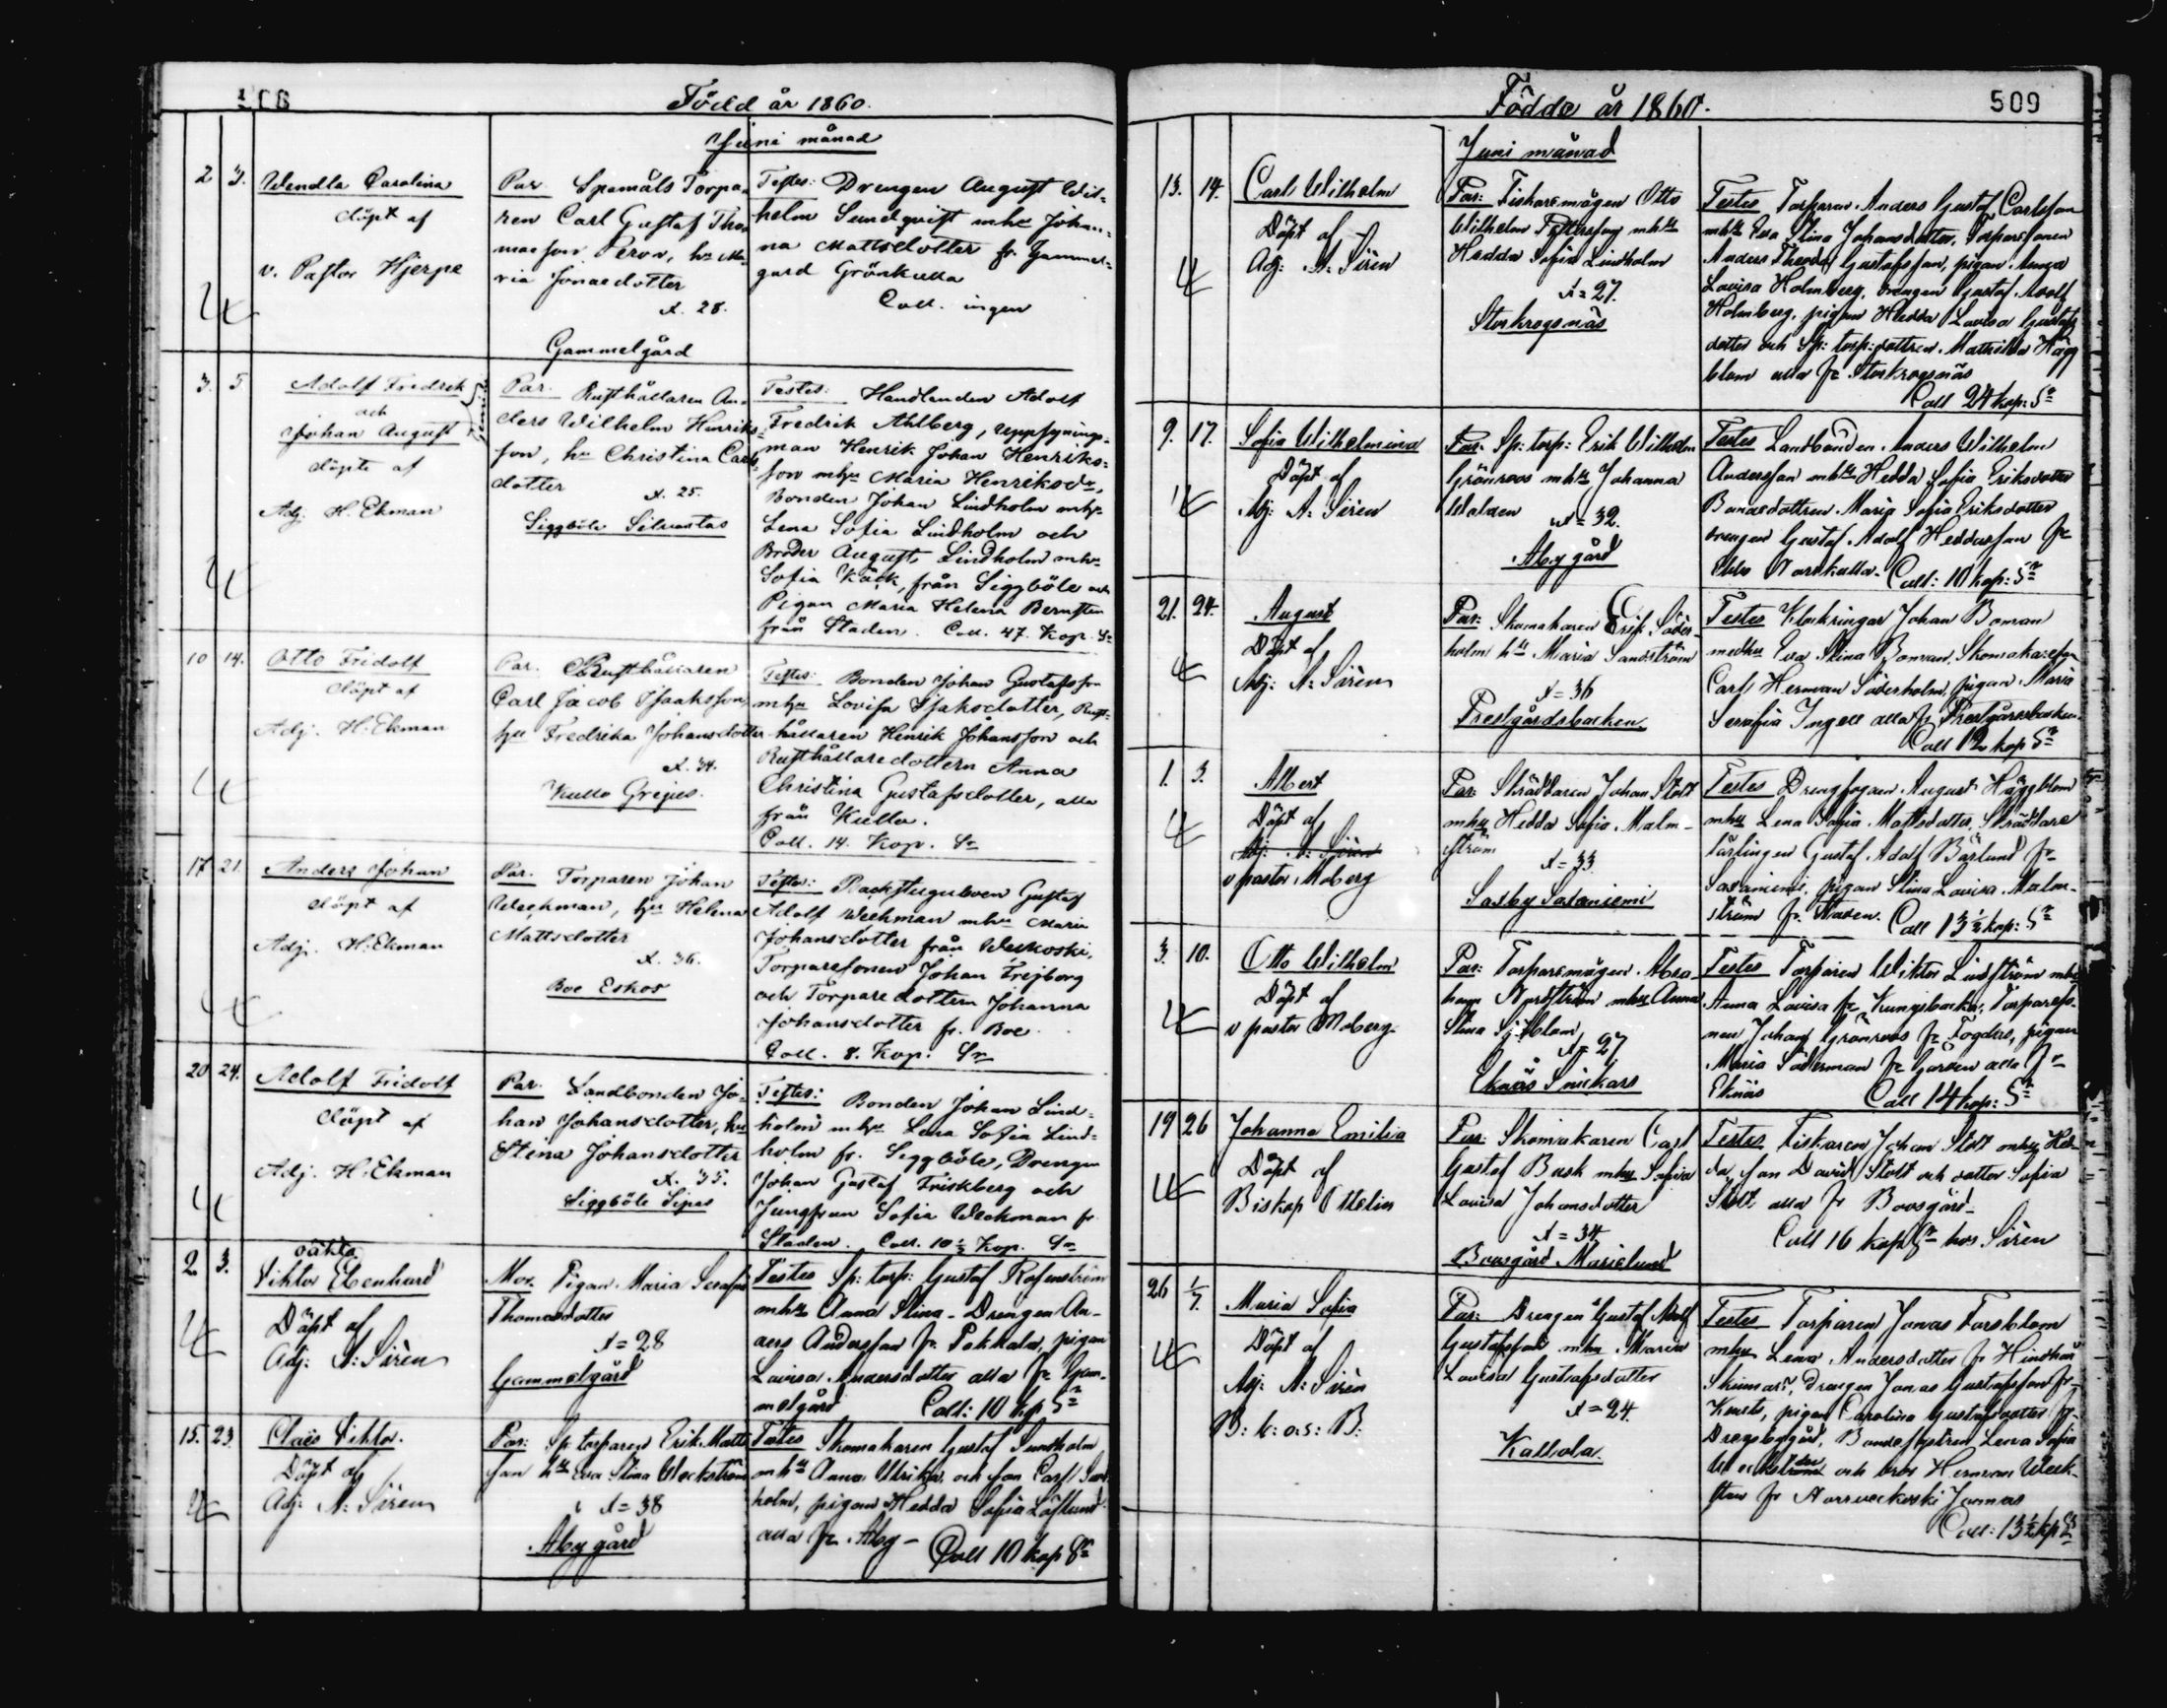 Född år 1860.
Juni månad
2 3. Wendla Carolina
döpt af
v. Pastor Hjerpe
Par. Spemåls Torpa-
ren Carl Gustaf Tho-
masson Peron, hu Ma-
ria Jonaedotter
æt. 28.
Gammelgård
Testes: Drengen August Wil-
helm Sundqvist mhu Johan-
na Mattsdotter fr. Gammel-
gård Grönkulla
Coll. ingen
3. 5 Adolf Fredrik
och
Johan August
döpte af
Adj. H. Ekman
Par. Rusthållaren An-
ders Wilhelm Henriks-
son, hu Christina Carls-
dotter
æt. 25.
Siggböle Silvastas
Testes: Handlanden Adolf
Fredrik Ahlberg, uppsynings-
man Henrik Johan Henriks-
son mhu Maria Henriksdr,
Bonden Johan Lindholm mhu
Lena Sofia Lindholm och
Broder August Lindholm mhu
Sofia Käck, från Siggböle och
Pigan Maria Helena Bernsten
från Staden. Coll. 47. Kop. Sr
10 14. Otto Fridolf
döpt af
Adj. H. Ekman
Par. Rusthållaren
Carl Jacob Isaaksson,
hu Fredrika Johansdotter
æt. 34.
Kullo Grejus.
Testes: Bonden Johan Gustafsson
mhu Lovisa Isaksdotter, Rust-
hållaren Henrik Johansson och
Rusthållaredottern Anna
Christina Gustafsdotter, alla
från Kullo.
Coll. 14. Kop. Sr
17 21. Anders Johan
döpt af
Adj. H. Ekman
Par. Torparen Johan
Weckman, hu Helena
Mattsdotter
æt. 36.
Boe Eskos
Testes: Backstuguboen Gustaf
Adolf Weckman mhu Maria
Johansdotter från Weckoski,
Torparesonen Johan Frejborg
och Torparedottern Johanna
Johansdotter fr. Boe.
Coll. 8. Kop. Sr
20 24. Adolf Fridolf
döpt af
Adj. H. Ekman
Par. Landbonden Jo-
han Johansdotter, hu
Stina Johansdotter
æt. 35.
Siggböle Sipas
Testes: Bonden Johan Lind-
holm mhu Lena Sofia Lind-
holm fr. Siggböle, Drengen
Johan Gustaf Friskberg och
Jungfrun Sofia Weckman fr.
Staden. Coll. 10 ½ Kop. Sr
2. 3. oäkta
Viktor Ebenhard
Döpt af
Adj: A: Sirèn
Mor. Pigan Maria Serafia
Thomasdotter
æt = 28
Gammelgård
Testes Sp: torp: Gustaf Rosenström
mhu Anna Stina - Drengen An-
ders Andersson fr Pekkala, pigan
Lovisa Andersdotter alla fr Gam-
melgård Coll: 10 kp Sr
15. 23. Claës Viktor.
Döpt af
Adj: A: Sirèn
Par: Sp: torparen Erik Matts
son hu Eva Stina Weckström
æt = 38
Aby gård
Testes Skomakaren Gustaf Sundholm
mhu Anna Ulrika, och son Carl Sund
holm, pigan Hedda Sofia Löflund
alla fr Aby - Coll 10 kop Sr
Födde år 1860.
509
Juni månad
13. 14. Carl Wilhelm
Döpt af
Adj: A: Sirèn
Par: Fiskaremågen Otto
Wilhelm Pettersson mhu
Hedda Sofia Lindholm
æt = 27.
Storkrogsnäs
Testes Torparen Anders Gustaf Carlsson
mhu Eva Stina Johansdotter, Torparsonen
Anders Theodor Gustafsson, pigan
Lovisa Holmberg, drengen Gustaf Adolf
Holmberg, pigan Hedda Lovisa Gustafs
dotter och Sp: torp: dottren Mathilda Hägg
blom alla fr Storkrogsnäs
Coll 24 kop: Sr
9. 17. Sofia Wilhelmina
Döpt af
Adj: A: Sirèn
Par: Sp: torp: Erik Wilhelm
Grönroos mhu Johanna
Walden æt = 32.
Aby gård
Testes Landbonden Anders Wilhelm
Andersson mhu Hedda Sofia Eriksdotter
Bondedottren Maria Sofia Eriksdotter
drengen Gustaf Adolf Heddasson fr
Coll: 10 kop: Sr
21. 24. August
Döpt af
Adj: A: Sirèn
Par: Skomakaren Erik Söder-
holm hu Maria Sandström
æt = 36
Prestgårdsbacken.
Testes Klockringar Johan Boman
medhu Eva Stina Boman, Skomakareson
Carl Herman Söderholm, pigan Maria
Serafia Ingell alla fr Prestgårdsbacken
Coll 12 kop Sr
1. 3. Albert
Döpt af
Adj: A: Sirèn
v pastor Moberg
Par: Skräddaren Johan Stolt
mhu Hedda Sofia Malm-
ström
æt = 33.
Saxby Sataniemi
Testes Drengfogden August Häggblom
mhu Lena Sofia Mattsdotter, Skräddare
lärlingen Gustaf Adolf Bärlund fr
Sataniemi, pigan Stina Lovisa Malm-
ström fr Staden. Coll 13 ½ kop: Sr
3. 10. Otto Wilhelm
Döpt af
v pastor Moberg
Par: Torparemågen Abra-
ham Nordström mhu Anna
Stina Sjöblom
æt = 27
Eknäs Snickars
Testes Torparen Wiktor Lindström mhu
Anna Lovisa fr Kungsbacka, Torpareso-
nen Johan Grönroos fr Fogdas, pigan
Maria Söderman fr Gården alla fr
Eknäs Coll 14 kop: Sr
19 26 Johanna Emilia
Döpt af
Biskop Ottelin
Par: Skomakaren Carl
Gustaf Busk mhu Sofia
Lovisa Johansdotter
æt = 34
Boesgård Marielund
Testes Fiskaren Johan Stolt mhu Hed-
da, son David Stolt och dotter Sofia
Stolt, alla fr Boesgård-
Coll 16 kop Sr hos Sirèn
26 1/7. Maria Sofia
Döpt af
Adj: A: Sirèn
B: k: o: s: B:
Par: Drengen Gustaf Adolf
Gustafsson mhu Maria
Lovisa Gustafsdotter
æt = 24.
Kallola.
Testes Torparen Jonas Forsblom
mhu Lena Andersdotter fr Hindhår
Skinnars, Drengen Jonas Gustafsson fr
pigan Carolina Gustafsdotter fr
Bondedottren Lena Sofia
och bror Herman Weck-
sten fr Norrveckoski Jumars
Coll: 13 ½ kp Sr